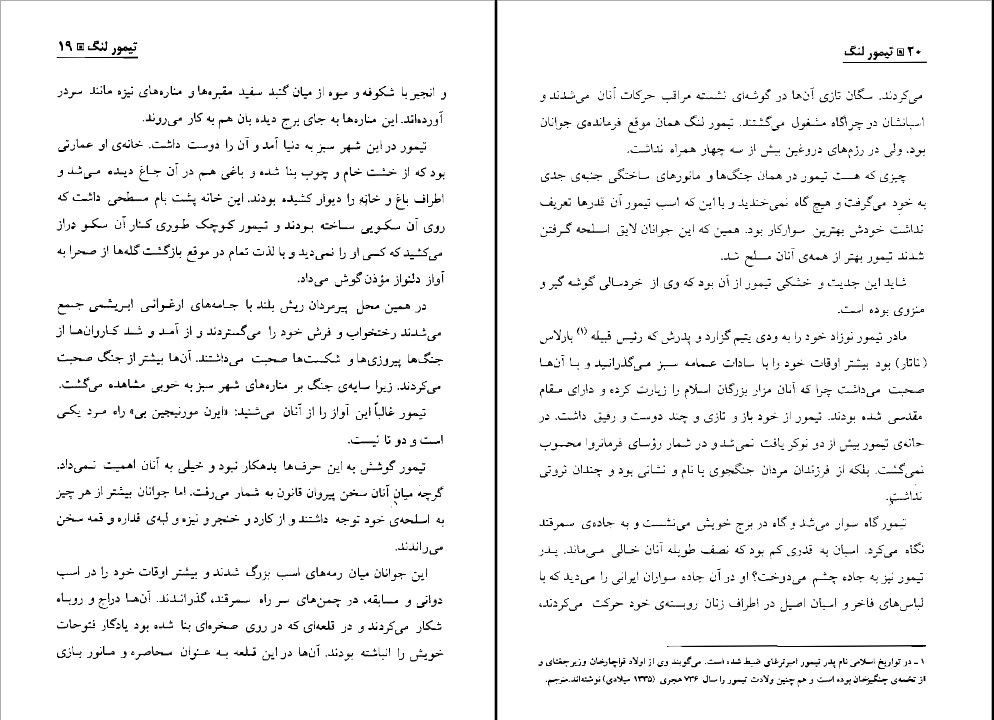 تیمور لنگ ▣ ۱۹
و انجیر با شکوفه و میوه از میان گنبد سفید مقبره‌ها و مناره‌های نیزه مانند سردر
آورده‌اند. این مناره‌ها به جای برج دیده بان هم به کار می‌روند.
تیمور در این شهر سبز به دنیا آمد و آن را دوست داشت. خانه‌ی او عمارتی
بود که از خشت خام و چوب بنا شده و باغی هم در آن جاغ دیده می‌شد و
اطراف باغ و خانه را دیوار کشیده بودند. این خانه پشت بام مسطحی داشت که
روی آن سکویی ساخته بودند و تیمور کوچک طوری کنار آن سکو دراز
می‌کشید که کسی او را نمی‌دید و با لذت تمام در موقع بازگشت گله‌ها از صحرا به
آواز دلنواز مؤذن گوش می‌داد.
در همین محل پیرمردان ریش بلند با جامه‌های ارغوانی ابریشمی جمع
می‌شدند رختخواب و فرش خود را می‌گستردند و از آمد و شد کاروان‌ها از
جنگ‌ها پیروزی‌ها و شکست‌ها صحبت می‌داشتند. آن‌ها بیشتر از جنگ صحبت
می‌کردند. زیرا سایه‌ی جنگ بر مناره‌های شهر سبز به خوبی مشاهده می‌گشت.
تیمور غالباً این آواز را از آنان می‌شنید: «ایرن مورنیجین بی» راه مرد یکی
است و دو تا نیست.
تیمور گوشش به این حرف‌ها بدهکار نبود و خیلی به آنان اهمیت نمی‌داد.
گرچه میان آنان سخن پیروان قانون به شمار می‌رفت. اما جوانان بیشتر از هر چیز
به اسلحه‌ی خود توجه داشتند و از کارد و خنجر و نیزه و لبه‌ی قداره و قمه سخن
می‌راندند.
این جوانان میان رمه‌های اسب بزرگ شدند و بیشتر اوقات خود را در اسب
دوانی و مسابقه، در چمن‌های سر راه سمرقند، گذراندند. آن‌ها دراج و روباه
شکار می‌کردند و در قلعه‌ای که در روی صخره‌ای بنا شده بود یادگار فتوحات
خویش را انباشته بودند. آن‌ها در این قلعه به عنوان محاصره و مانور بازی
۲۰ ▣ تیمور لنگ
می‌کردند. سگان تازی آن‌ها در گوشه‌ای نشسته مراقب حرکات آنان می‌شدند و
اسبانشان در چراگاه مشغول می‌گشتند. تیمور لنگ همان موقع فرمانده‌ی جوانان
بود، ولی در رزم‌های دروغین بیش از سه چهار همراه نداشت.
چیزی که هست تیمور در همان جنگ‌ها و مانورهای ساختگی جنبه‌ی جدی
به خود می‌گرفت و هیچ گاه نمی‌خندید و با این که اسب تیمور آن قدرها تعریف
نداشت خودش بهترین سوارکار بود. همین که این جوانان لایق اسلحه گرفتن
شدند تیمور بهتر از همه‌ی آنان مسلح شد.
شاید این جدیت و خشکی تیمور از آن بود که وی از خردسالی گوشه گیر و
منزوی بوده است.
مادر تیمور نوزاد خود را به ودی یتیم گزارد و پدرش که رئیس قبیله (۱) بارلاس
(تاتار) بود بیشتر اوقات خود را با سادات عمامه سبز می‌گذرانید و با آن‌ها
صحبت می‌داشت چرا که آنان مزار بزرگان اسلام را زیارت کرده و دارای مقام
مقدسی شده بودند. تیمور از خود باز و تازی و چند دوست و رفیق داشت. در
خانه‌ی تیمور بیش از دو نوکر یافت نمی‌شد و در شمار رؤسای فرمانروا محسوب
نمی‌گشت. بلکه از فرزندان مردان جنگجوی با نام و نشانی بود و چندان ثروتی
نداشت.
تیمور گاه سوار می‌شد و گاه در برج خویش می‌نشست و به جاده‌ی سمرقند
نگاه می‌کرد. اسبان به قدری کم بود که نصف طویله آنان خالی می‌ماند. پدر
تیمور نیز به جاده چشم می‌دوخت؟ او در آن جاده سواران ایرانی را می‌دید که با
لباس‌های فاخر و اسبان اصیل در اطراف زنان روبسته‌ی خود حرکت می‌کردند،
۱ ـ در تواریخ اسلامی نام پدر تیمور امیرترغای ضبط شده است. می‌گویند وی از اولاد قراچارخان وزیر جغتای و
از تخمه‌ی چنگیزخان بوده است و هم چنین ولادت تیمور را سال ۷۳۶ هجری (۱۳۳۵ میلادی) نوشته‌اند.مترجم.